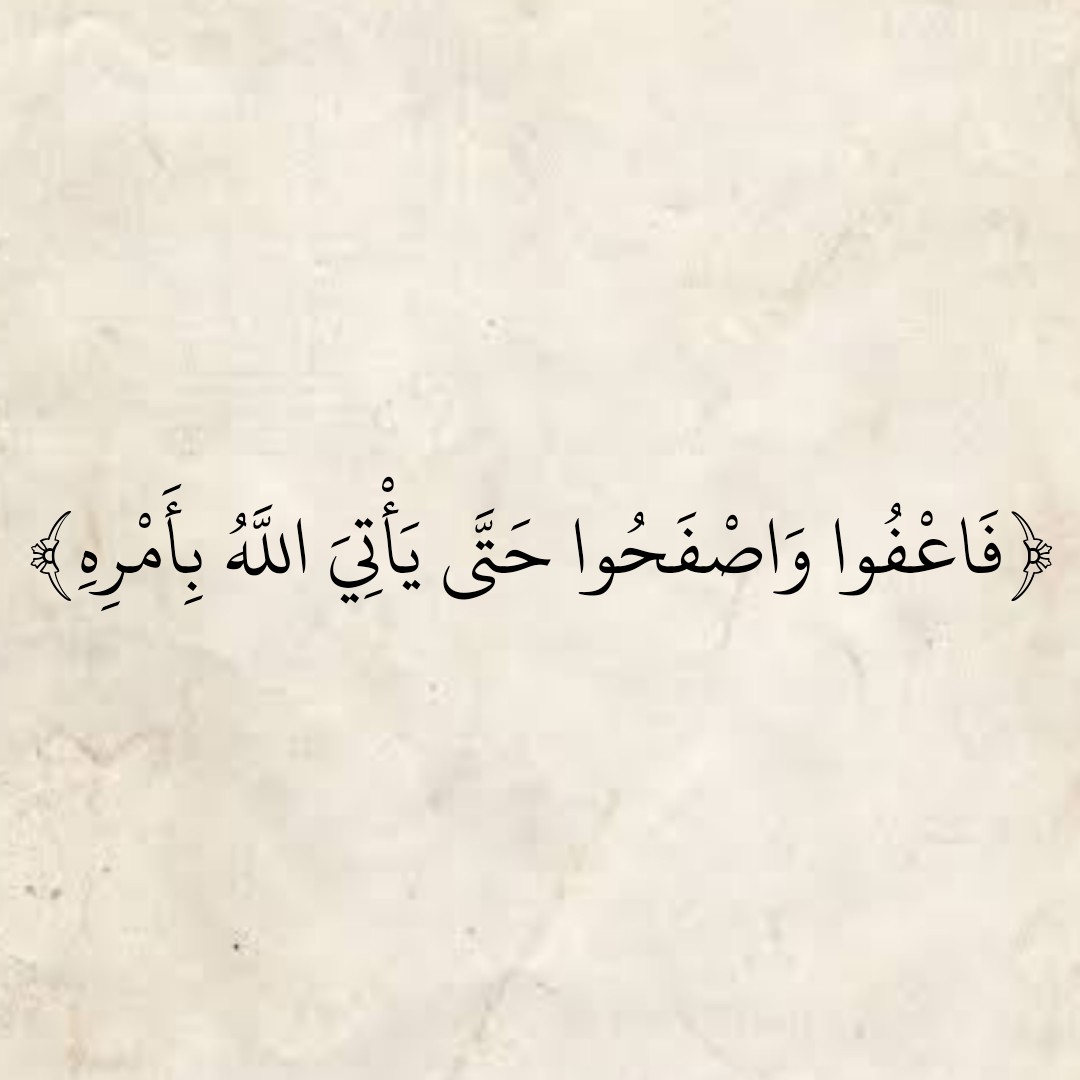 ﴿فَاعْفُوا وَاصْفَحُوا حَتَّى يَأْتِيَ اللَّهُ بِأَمْرِهِ﴾